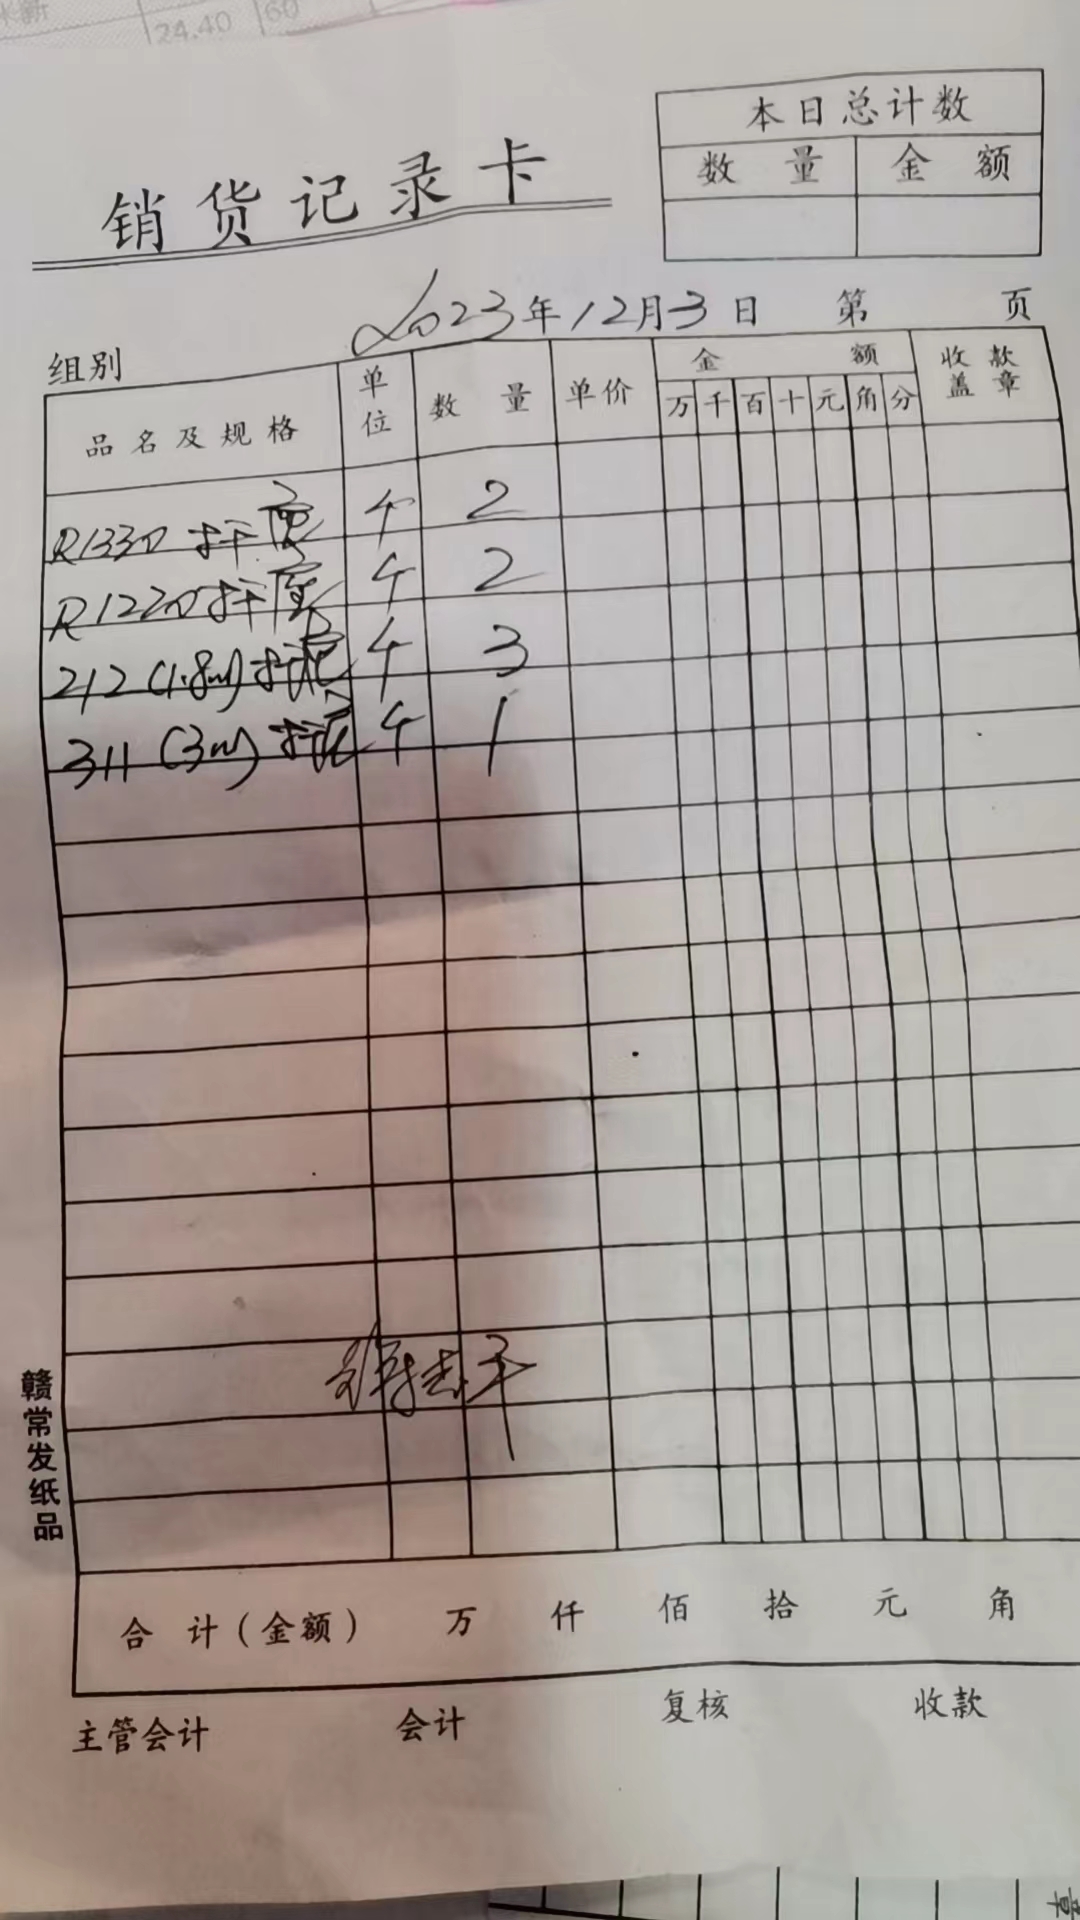 24.40 60
本日总计数
数量 金额
销货记录卡
2023年12月3日 第 页
组别
品名及规格 单位 数量 单价 金额 收款盖章
万 千 百 十 元 角 分
R1330 个 2
R1220 个 2
212 (1.8m) 个 3
311 (3m) 个 1
赣常发纸品
合计(金额) 万 仟 佰 拾 元 角
主管会计 会计 复核 收款
章